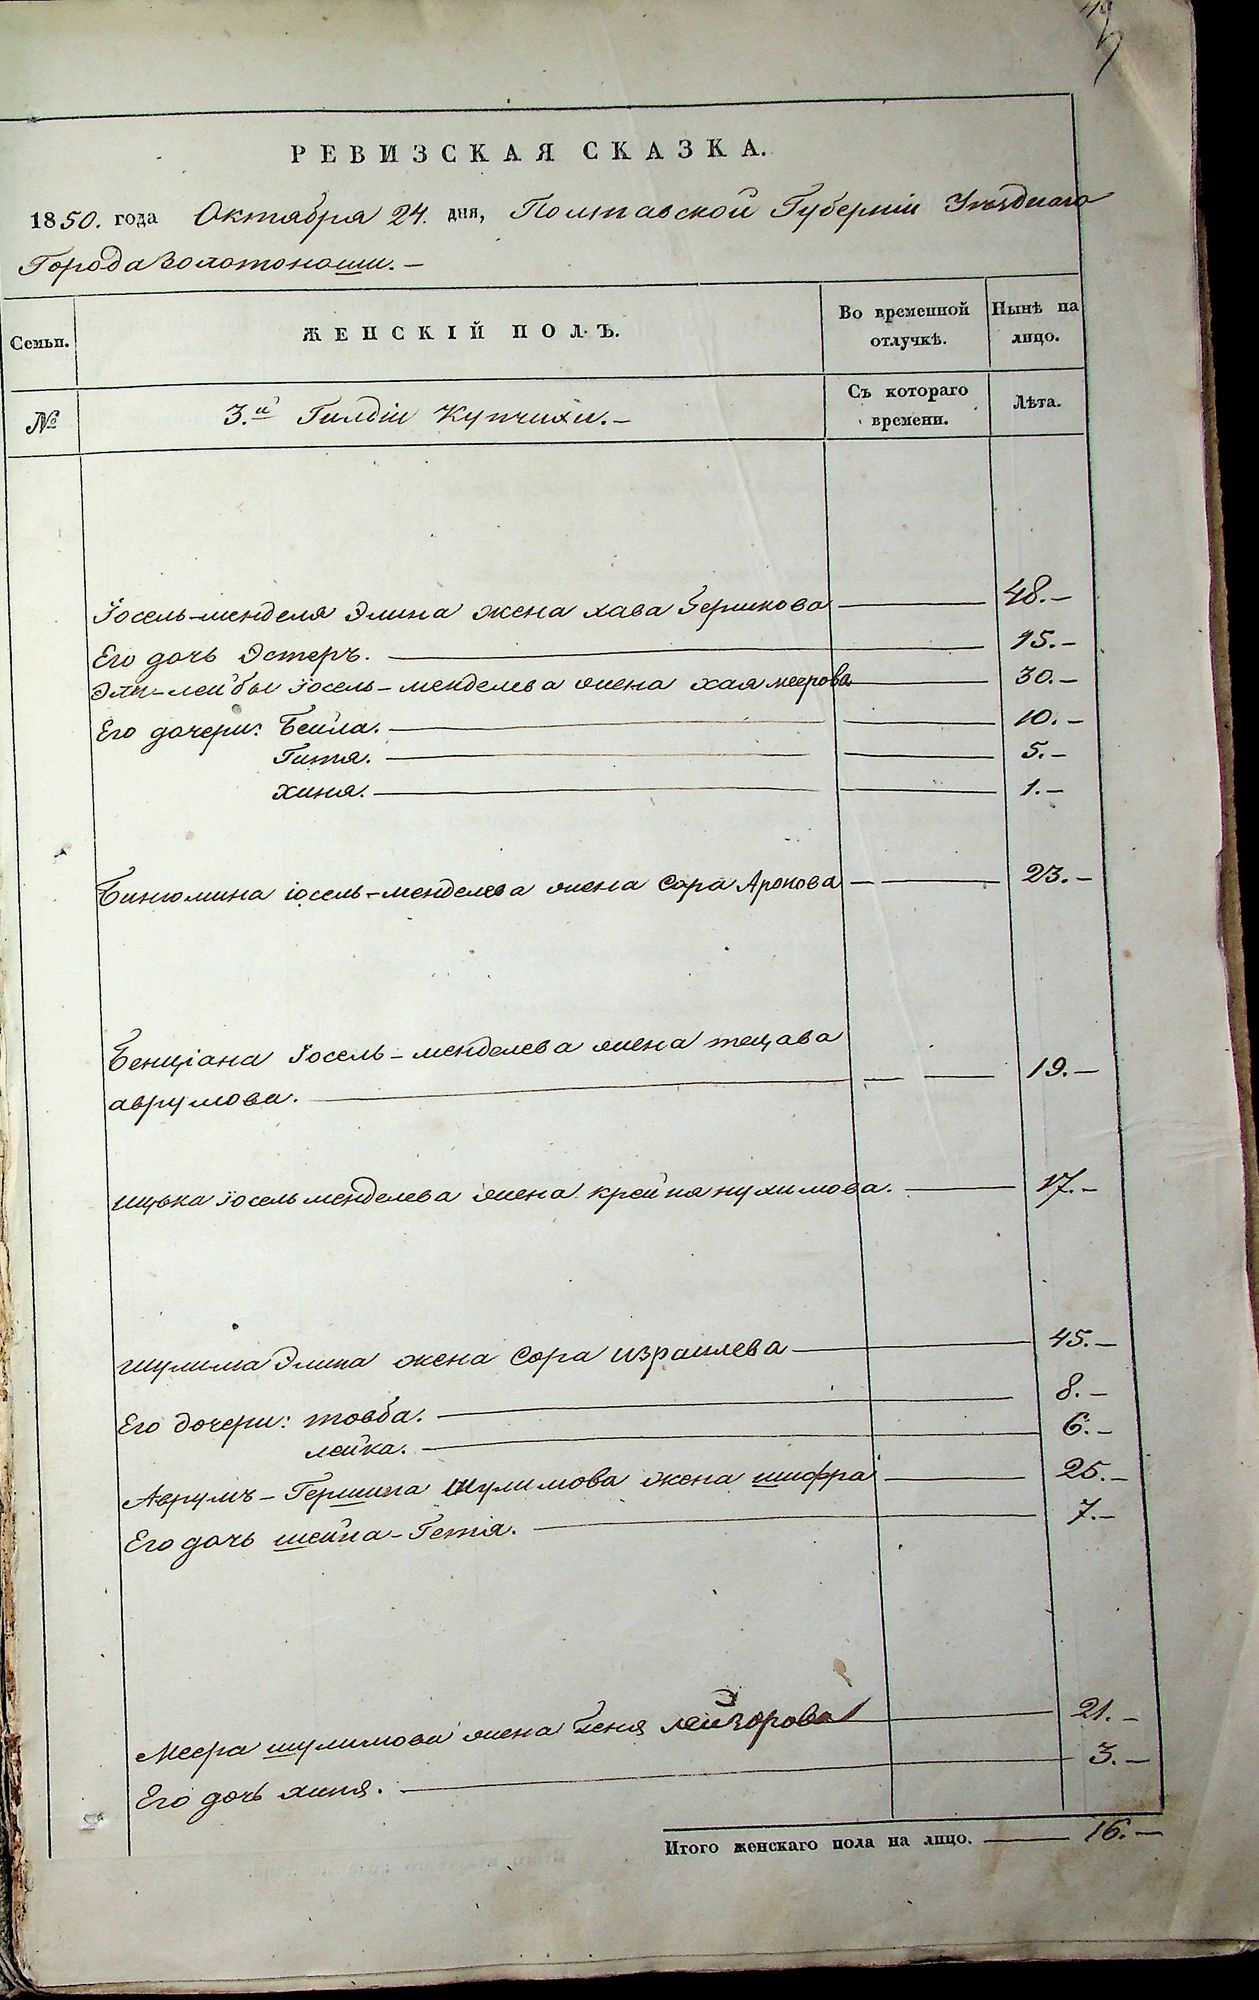 РЕВИЗСКАЯ СКАЗКА.
1850. года Октября 24. дня, Полтавской Губерніи Уѣзднаго
Города Золотоноши.–
Семьи.
ЖЕНСКІЙ ПОЛЪ.
Во временной отлучкѣ.
Нынѣ на лицо.
№
3.й Гилдіи Купчихи.–
Съ котораго времени.
Лѣта.
Іосель-менделя Элина жена хава Берикова 48.–
Его дочь Эстеръ. 15.–
Эли-лейбы Іосель-менделева жена хая меерова 30.–
Его дочери: Бейла. 10.–
Гитя. 5.–
хиня. 1.–
Бинюмина іосель-менделева жена Сора Аронова 23.–
Бенціана Іосель-менделева жена
аврумова. 19.–
ицька іосель менделева жена крейня нухимова. 17.–
шулима Элина жена Сора израилева 45.–
Его дочери: товба. 8.–
лейка. 6.–
Аврумъ-Гершина шулимова жена шифра 25.–
Его дочь шейна-Гетя. 7.–
Меера шулимова жена Геня лейзорова 21.–
Его дочь хиня. 3.–
Итого женскаго пола на лицо. 16.–